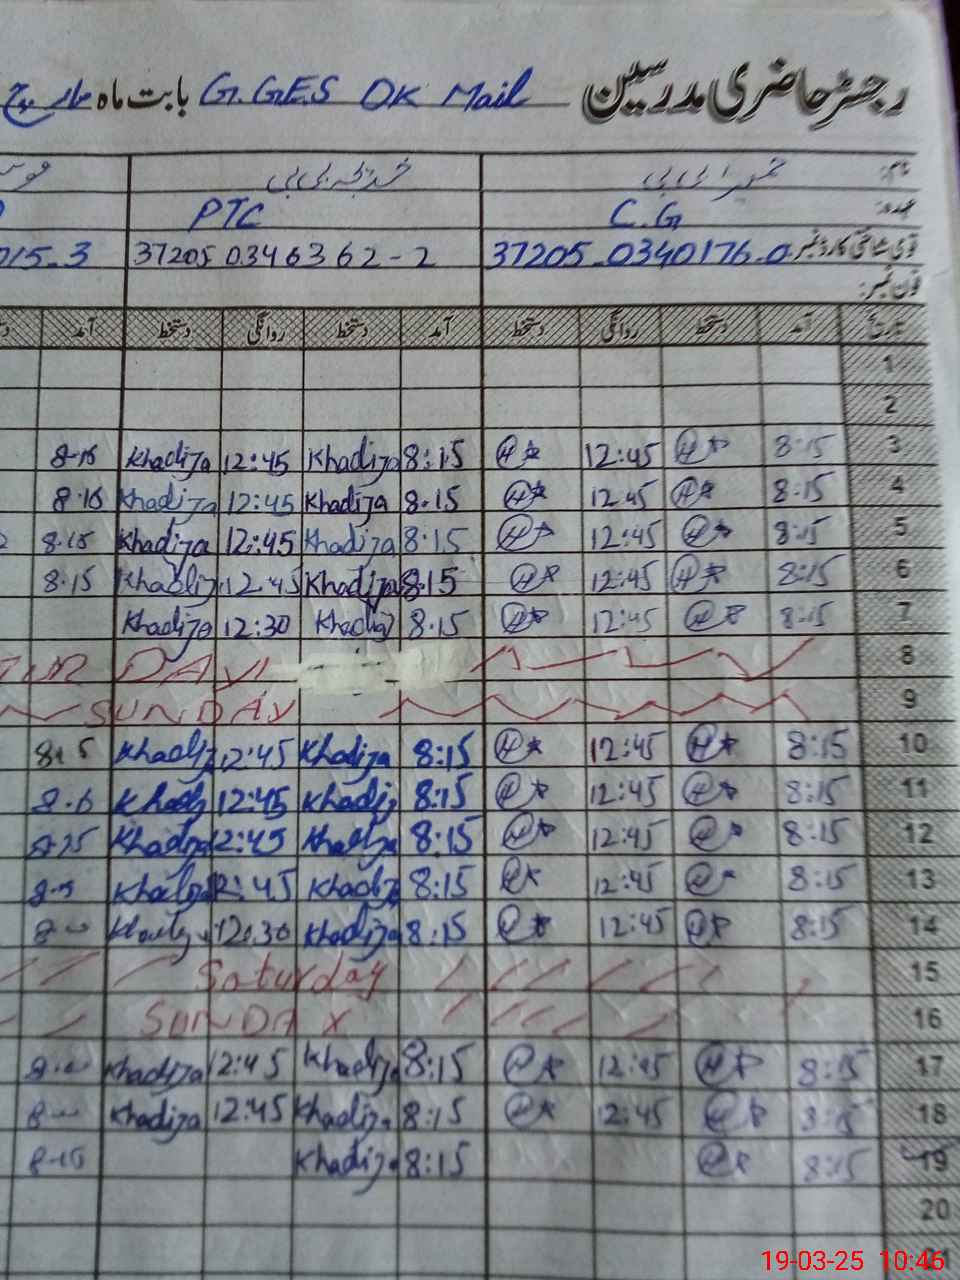 رجسٹر حاضری مدرسین G.GES DK Mail بابت ماہ مارچ
نام: بی بی خدیجہ بی بی
عہدہ: C.G PTC
قومی شناختی کارڈ نمبر: 37205-0340176-0 37205 0346362-2 015-3
فون نمبر:
تاریخ آمد دستخط روانگی دستخط آمد دستخط روانگی دستخط آمد
1
2
3 8:15 H 12:45 H 8:15 Khadija 12:45 Khadija 8-15
4 8:15 H 12:45 H 8.15 Khadija 12:45 Khadija 8.15
5 8:15 H 12:45 H 8.15 Khadija 12:45 Khadija 8.15
6 8:15 H 12:45 H 8.15 Khadija 12.45 Khadija 8.15
7 8:15 H 12:45 H 8.15 Khadija 12:30 Khadija
8 TUR DAY
9 SUNDAY
10 8:15 H 12:45 H 8:15 Khadija 12:45 Khadija 8:15
11 8:15 H 12:45 H 8:15 Khadija 12:45 Khadija
12 8:15 H 12:45 H 8:15 Khadija 12:45 Khadija
13 8:15 H 12:45 H 8:15 Khadija 12:45 Khadija
14 8:15 H 12:45 H 8:15 Khadija 12:30 Khadija
15 Saturday
16 SUNDAY
17 8:15 H 12:45 H 8:15 Khadija 12:45 Khadija
18 8:15 H 12:45 H 8:15 Khadija 12:45 Khadija
19 8:15 H 8:15 Khadija 8-15
20
19-03-25 10:46